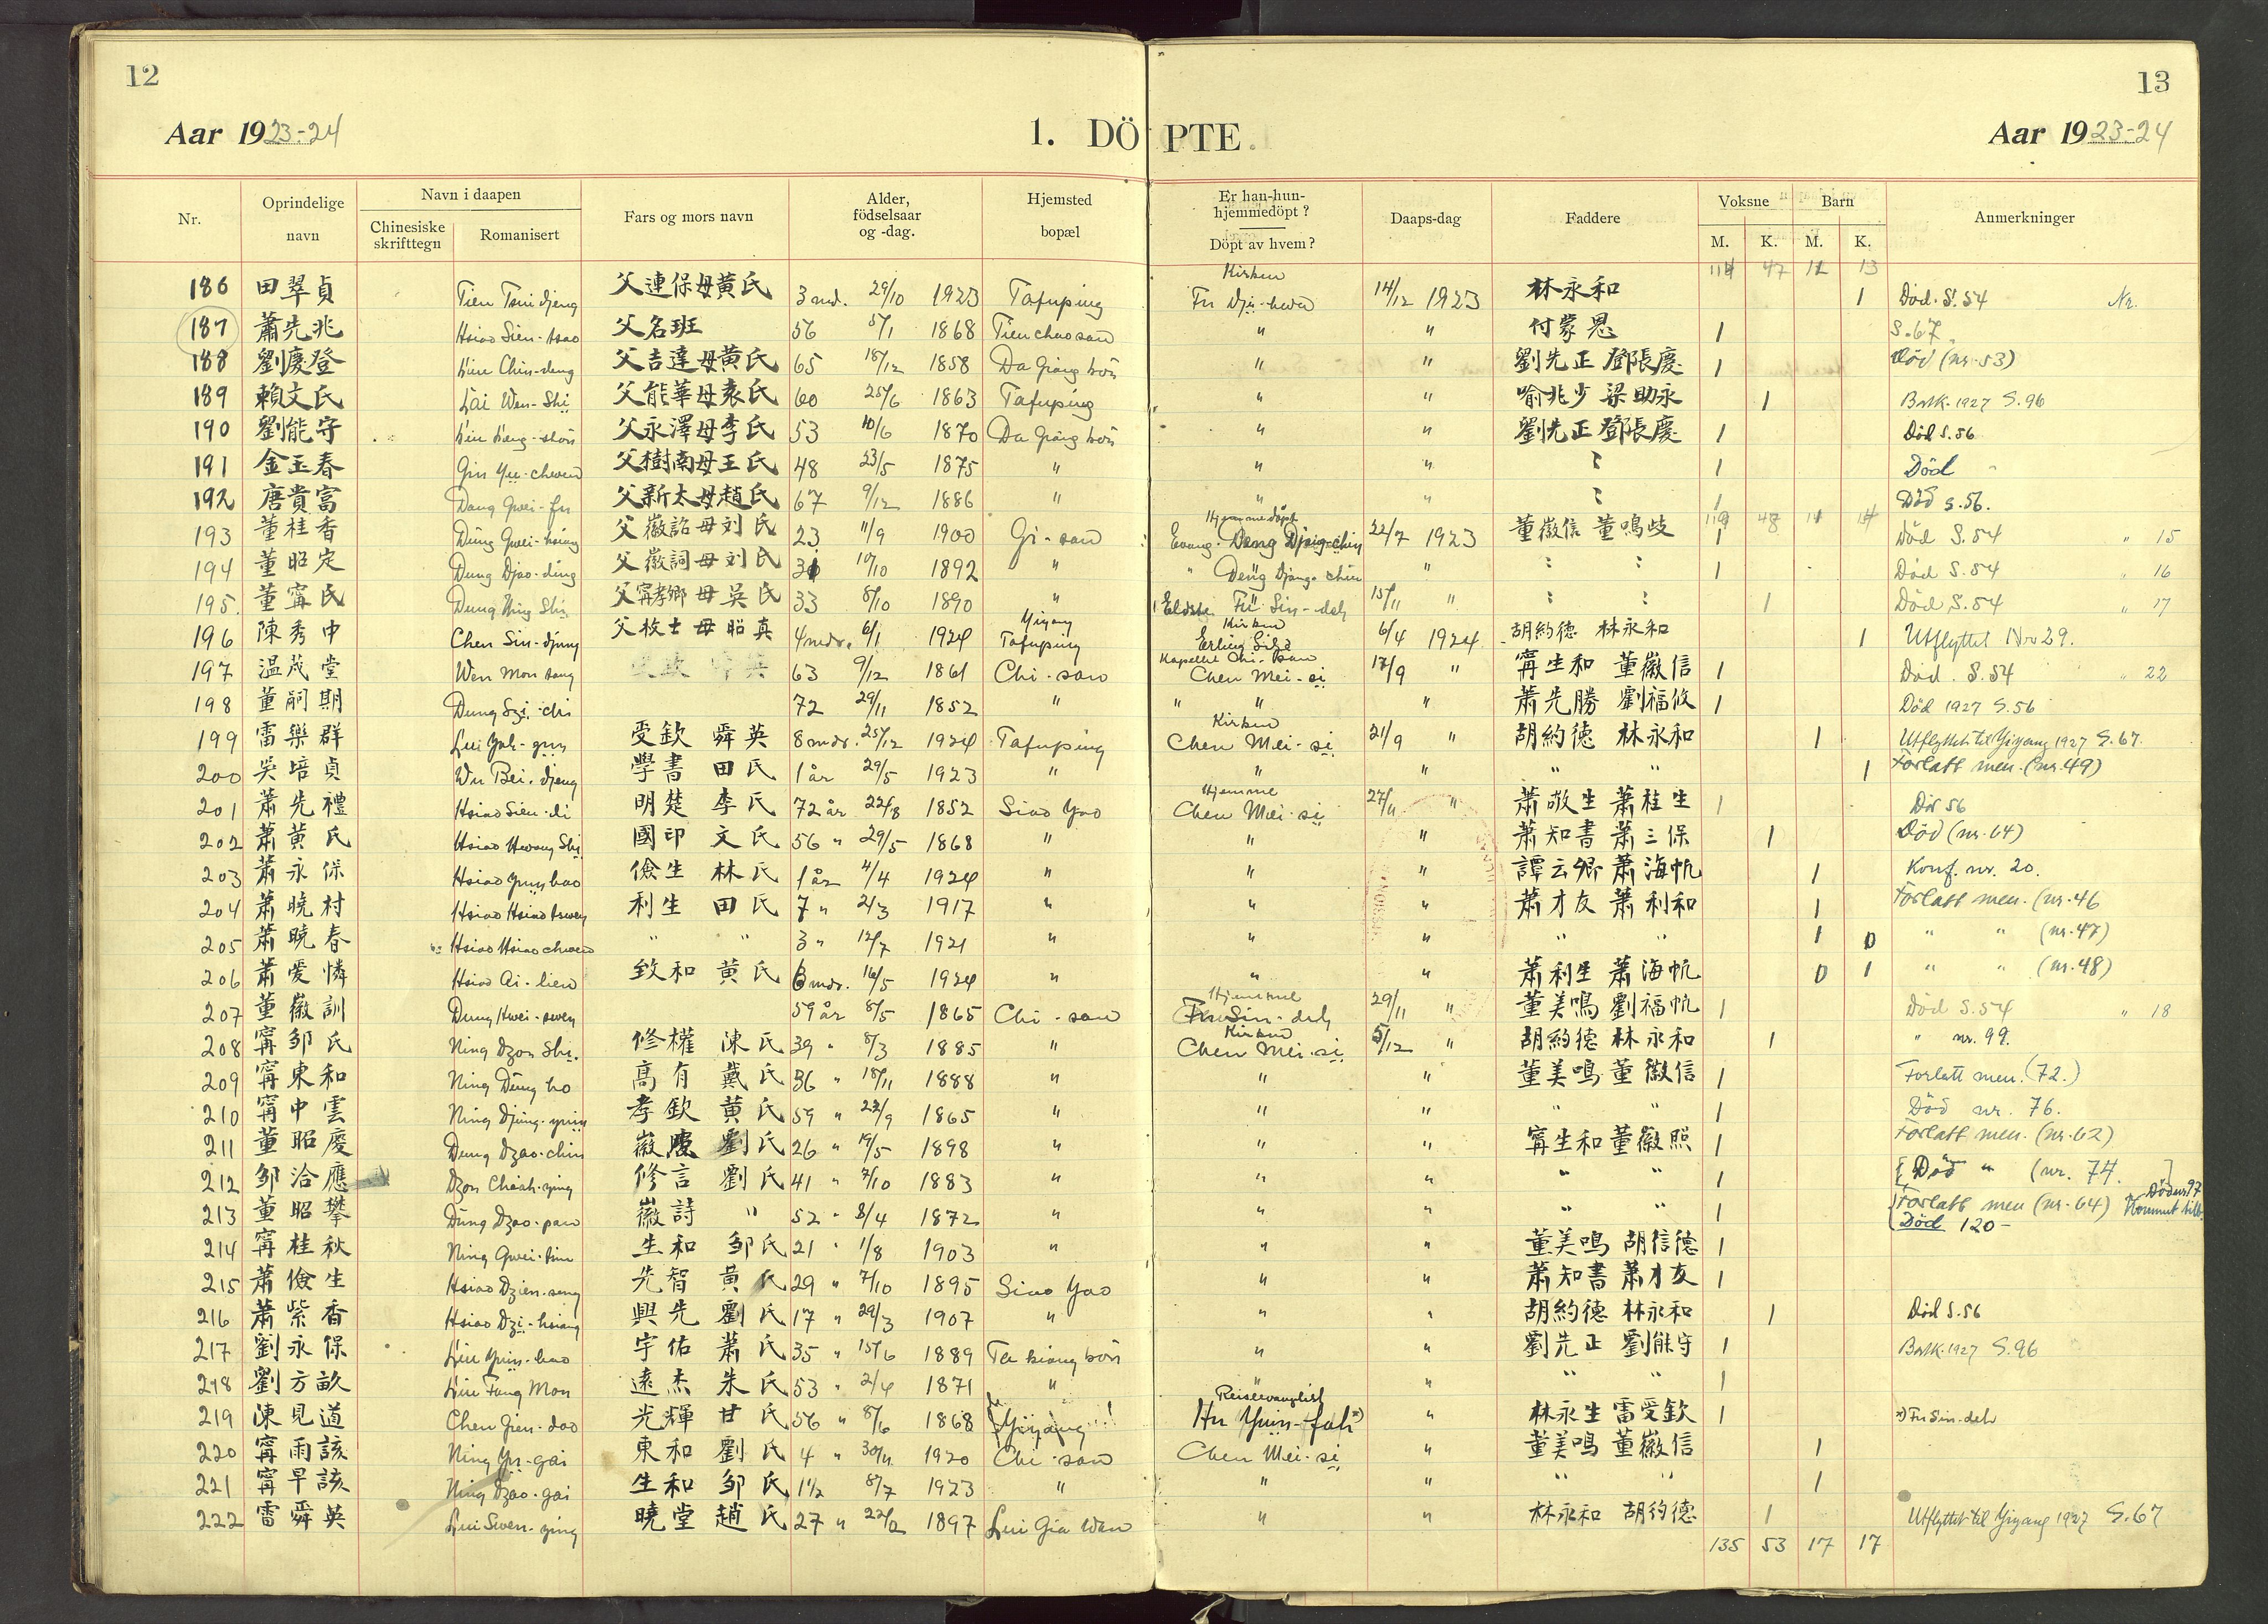 12
13
Aar 1923-24
1. DÖPTE.
Aar 1923-24
Nr. Oprindelige navn Navn i daapen Chinesiske skrifttegn Romanisert Fars og mors navn Alder, födselsaar og -dag. Hjemsted bopæl Er han-hun-hjemmedöpt? Döpt av hvem? Daaps-dag Faddere Voksne M. K. Barn M. K. Anmerkninger
47 13
186 田翠貞 Tien Tsui djeng 父連保母黄氏 3 md. 29/10 1923 Tafuping Kirken Fu Dji-hwa 14/12 1923 林永和 1 Död. S. 54 Nr.
187 蕭先兆 Hsiao Sien-tsao 父名班 56 5/1 1868 Tienchaosan " " 付蒙恩 1 S. 67.
188 劉慶登 Liu Chin-deng 父吉達母黄氏 65 18/12 1858 " " 劉先正 鄧張慶 1 Död (nr. 53)
189 賴文氏 Lai Wen-Shi 父能華母袁氏 60 25/6 1863 Tafuping " " 喻兆少 梁助永 1 1927 S. 96
190 劉能守 父永澤母李氏 53 10/6 1870 " " 劉先正 鄧張慶 1 Död S. 56
191 金玉春 Gin Yu-chwen 父樹南母王氏 48 23/5 1875 " " " 1 Död
192 唐貴富 Dang Gwei-fu 父新太母趙氏 67 9/12 1886 " " " 1 Död S. 56.
48
193 董桂香 Dung Gwei-hsiang 父徽詔母刘氏 23 11/9 1900 Gi-san Hjemmedöpt Evang. Deng Djang-chin 22/7 1923 董徽信 董鳴歧 1 Död S. 54 " 15
194 董昭定 Dung Djao-ding 父徽詞母刘氏 10/10 1892 " " Deng Djang-chin " : : 1 Död S. 54 " 16
195. 董甯氏 Dung Ning Shi 父甯孝卿母吳氏 33 8/10 1890 " Eldste Fu Sin-deh 15/11 " : : 1 Död S. 54 " 17
196 陳秀中 Chen Siu-djung 父枚士母昭真 4 mdr. 6/1 1924 Yiyang Tafuping Kirken Erling Sild 6/4 1924 胡約德 林永和 1 Utflyttet Nr 29.
197 温茂堂 Wen Mou tang 63 9/12 1861 Chi-san Kapellet Chi-san Chen Mei-si 17/9 " 甯生和 董徽信 1 Död. S. 54 " 22
198 董嗣期 Dung Szi-chi 72 29/11 1852 " " " " 蕭先勝 劉福攸 1 Död 1927 S. 56
199 雷樂群 Lui Yoh-gyn 受欽 舜英 8 mdr. 25/12 1924 Tafuping Kirken Chen Mei-si 21/9 " 胡約德 林永和 1 Utflyttet til Yiyang 1927 S. 67.
200 吳培貞 Wu Bei-djeng 學書 田氏 1 år 29/5 1923 " " " " " 1 Forlatt men. (nr. 49)
201 蕭先禮 Hsiao Sien-li 明楚 李氏 72 år 22/8 1852 Siao Yao Hjemme Chen Mei-si 27/11 " 蕭敬生 蕭桂生 1 56
202 蕭黃氏 Hsiao Hwang Shi 國印 文氏 56 " 29/5 1868 " " " 蕭知書 蕭三保 1 Död (nr. 64)
203 蕭永保 Hsiao Yun bao 儉生 林氏 1 år 4/4 1924 " " " 譚云卿 蕭海帆 1 Konf. nr. 20.
204 蕭曉村 Hsiao Hsiao tswen 利生 田氏 7 " 2/3 1917 " " " 蕭才友 蕭利和 1 Forlatt men. (nr. 46
205 蕭曉春 Hsiao Hsiao chwen " " 3 " 12/7 1921 " " " " " 1 0 " " (nr. 47)
206 蕭愛憐 Hsiao Ai-lien 致和 黄氏 6 mdr. 16/5 1924 " " " 蕭利生 蕭海帆 0 1 " " (nr. 48)
207 董徽訓 Dung Hwei-swen 59 år 8/5 1865 Chi-san Hjemme Fu Sin-deh 29/11 " 董美鳴 劉福帆 1 Död S. 54 " 18
208 甯邹氏 Ning Dzou Shi. 修權 陳氏 39 " 8/3 1885 " Kirken Chen Mei-si 5/12 " 胡約德 林永和 1 " nr. 99.
209 甯東和 Ning Dung ho 高有 戴氏 36 " 18/11 1888 " " " 董美鳴 董徽信 1 Forlatt men. (72.)
210 甯中雲 Ning Djung-yuin 孝欽 黄氏 59 " 22/9 1865 " " " " " 1 Död nr. 76.
211 董昭慶 Dung Dzao-chin 徽慶 劉氏 26 " 19/5 1898 " " " 甯生和 董徽照 1 Forlatt men. (nr. 62)
212 邹洽應 Dzou Chiah-ying 修言 劉氏 41 " 7/10 1883 " " " " " 1 Död " (nr. 74.
213 董昭攀 Dung Dzao-pan 徽詩 " 52 " 8/4 1872 " " " " " 1 Forlatt men (nr. 64) Kommet tilb. Död nr 97
Död 120-
214 甯桂秋 生和 邹氏 21 " 1/8 1903 " " " 董美鳴 胡信德 1
215 蕭儉生 Hsiao Dzien-seng 先智 黄氏 29 " 7/10 1895 Siao Yao " " 蕭知書 蕭才友 1
216 蕭紫香 Hsiao Dzi-hsiang 興先 劉氏 17 " 29/3 1907 " " " 胡約德 林永和 1 Död S. 56
217 劉永保 Liu Yuin-bao 宇佑 蕭氏 35 " 15/6 1889 " " 劉先正 劉能守 1 1927 S. 96
218 劉方畝 Liu Fang Mou 遠杰 朱氏 53 " 2/4 1871 " " " " " 1
219 陳見道 Chen Gien-dao 光輝 甘氏 56 " 8/6 1868 Yiyang Reiseevangelist Hu Yuin-fah*) " 林永生 雷受欽 1 *) Fu Sin-deh
220 甯雨該 Ning Yu-gai 東和 劉氏 4 " 30/11 1920 Chi-san Chen Mei-si " 董美鳴 董徽信 1
221 甯早該 Ning Dzao-gai 生和 邹氏 1½ 8/7 1923 " " " " " 1
222 雷舜英 Lui Swen-ying 曉堂 趙氏 27 " 22/2 1897 Lui Gia Wan " " 林永和 胡約德 1 Utflyttet til Yiyang 1927 S. 67
135 53 17 17